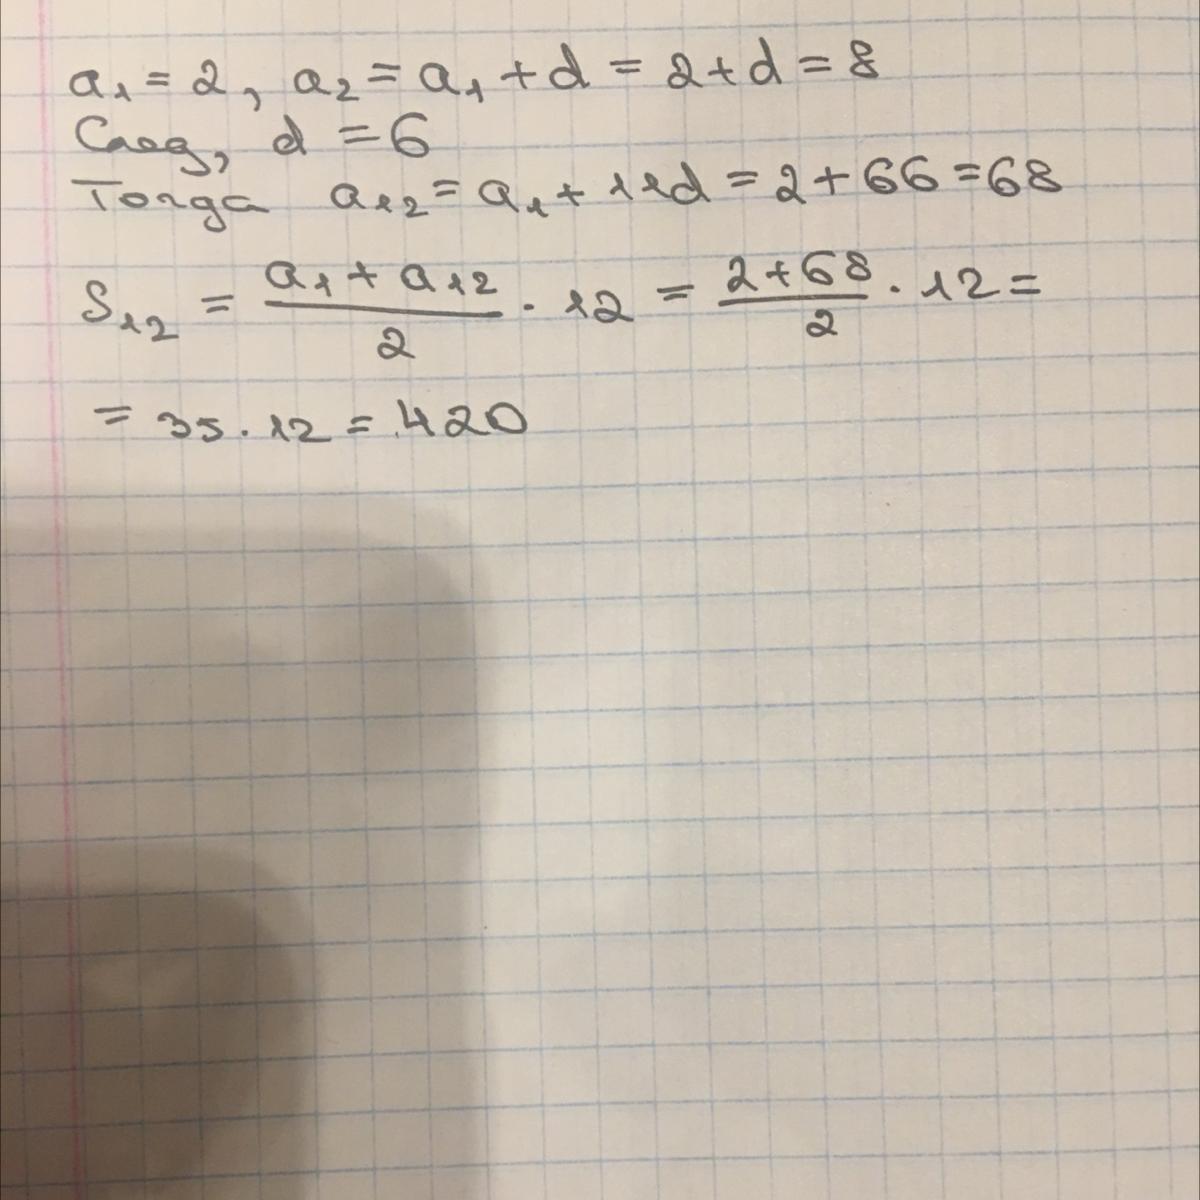 a₁ = 2, a₂ = a₁ + d = 2 + d = 8
След, d = 6
Тогда a₁₂ = a₁ + 11d = 2 + 66 = 68
S₁₂ = (a₁ + a₁₂)/2 · 12 = (2 + 68)/2 · 12 =
= 35 · 12 = 420